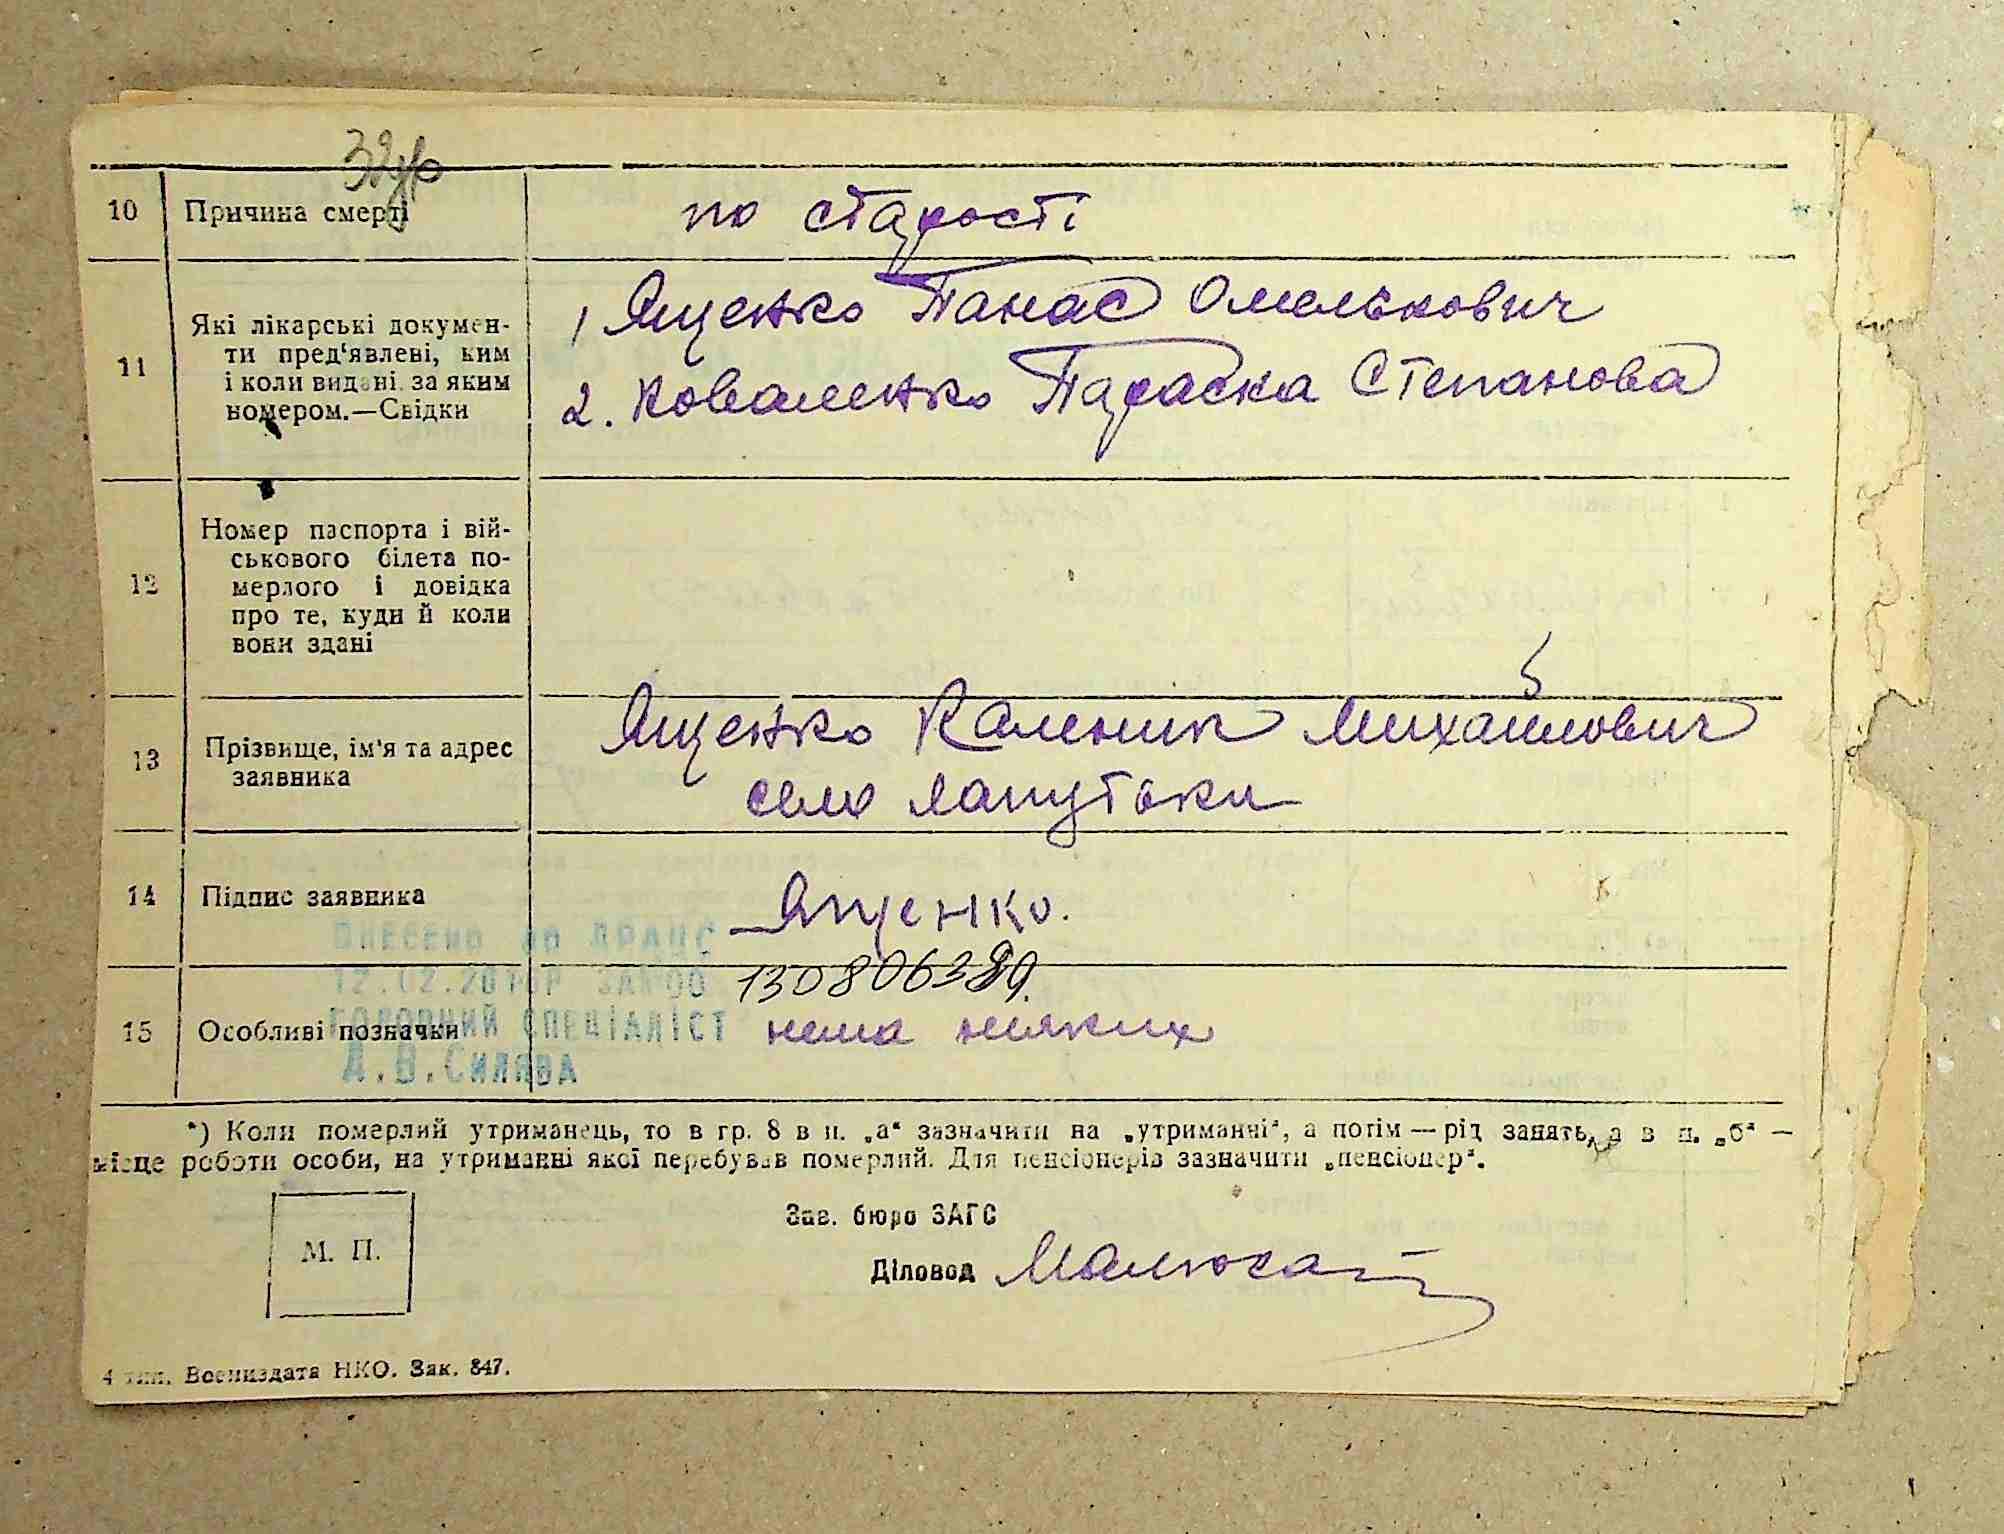 32
10 Причина смерті по старості
11 Які лікарські докумен-
ти пред'явлені, ким
і коли видані за яким
номером.—Свідки
1 Ященко Панас Омелькович
2. Коваленко Параска Степанова
12 Номер паспорта і вій-
ськового білета по-
мерлого і довідка
про те, куди й коли
вони здані
13 Прізвище, ім'я та адрес
заявника
Ященко Каленик Михайлович
село Лапутьки
14 Підпис заявника Ященко.
ВНЕСЕНО ДО ДРАЦС
130806389.
ГОЛОВНИЙ СПЕЦІАЛІСТ
15 Особливі позначки нема ніяких
Д.В.Силява
*) Коли померлий утриманець, то в гр. 8 в п. „а“ зазначити на „утриманні“, а потім — рід занять, а в п. „б“ —
місце роботи особи, на утриманні якої перебував померлий. Для пенсіонерів зазначити „пенсіонер“.
М. П.
Зав. бюро ЗАГС
Діловод
4 тип. Воениздата НКО. Зак. 847.